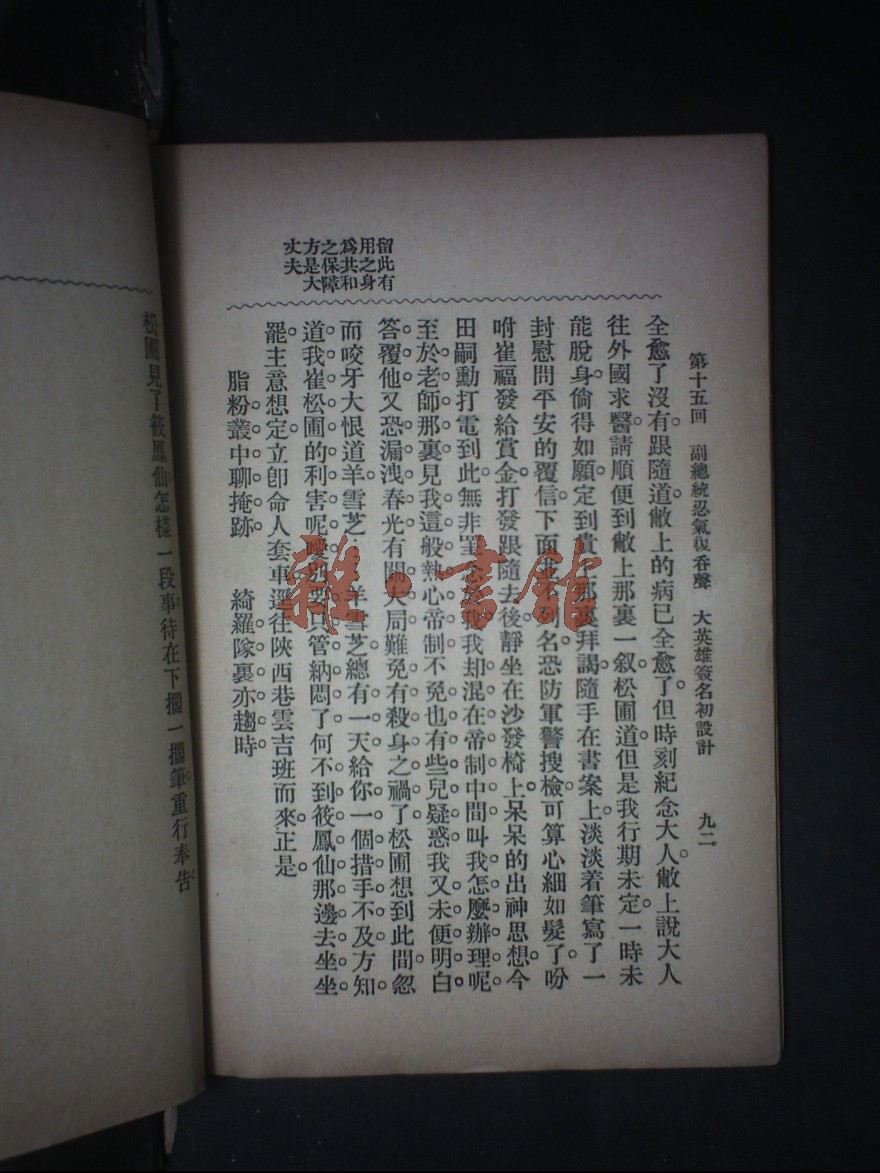 第十五回　副總統忍氣復吞聲　大英雄簽名初設計　九二
留此有
用之身
爲共和
之保障
方是大
丈夫
全愈了沒有。跟隨道。敝上的病已全愈了。但時刻紀念大人。敝上說大人
往外國求醫。請順便到敝上那裏一叙。松圃道。但是我行期未定。一時未
能脫身。倘得如願。定到貴上那裏拜謁。隨手在書案上。淡淡着筆。寫了一
封慰問平安的覆信。下面也不列名。恐防軍警搜檢。可算心細如髮了。吩
咐崔福發給賞金。打發跟隨去後。靜坐在沙發椅上。呆呆的出神思想。今
田嗣勳打電到此。無非罣念我。我却混在帝制中間。叫我怎麼辦理呢。
至於老師那裏。見我這般熱心帝制。不免也有些兒疑惑。我又未便明白
答覆他。又恐漏洩春光。有關大局。難免有殺身之禍了。松圃想到此間。忽
而咬牙大恨道。羊雪芝。羊雪芝。總有一天給你一個措手不及。方知
道我崔松圃的利害呢。嗳。別要只管納悶了。何不到筱鳳仙那邊去坐坐
罷。主意想定。立卽命人套車。逕往陝西巷雲吉班而來。正是。
脂粉叢中聊掩跡。　綺羅隊裏亦趨時。
松圃見了筱鳳仙怎樣一段事。待在下擱一擱筆。重行奉告。
雜·書館